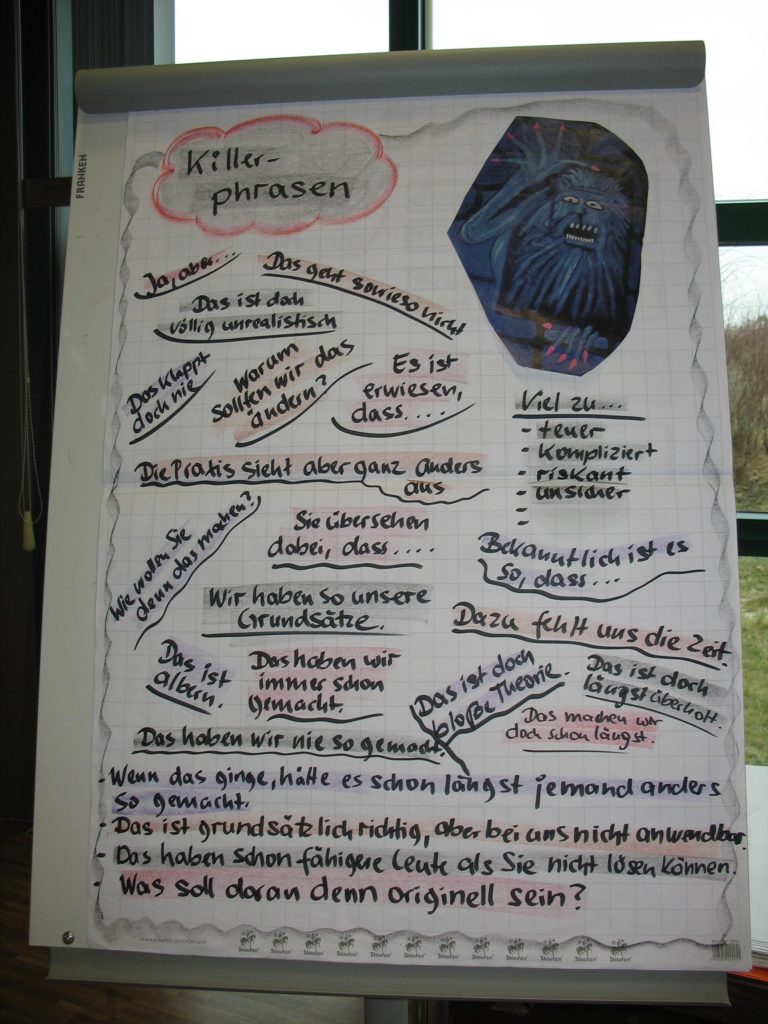 FRANKEN
Killer-
phrasen
Ja, aber...
Das geht sowieso nicht
Das ist doch
völlig unrealistisch
Das klappt
doch nie
Warum
sollten wir das
ändern?
Es ist
erwiesen,
dass....
Viel zu...
- teuer
- kompliziert
- riskant
- unsicher
-
-
Die Praxis sieht aber ganz anders
aus
Wie wollen Sie
denn das machen?
Sie übersehen
dabei, dass....
Bekanntlich ist es
so, dass...
Wir haben so unsere
Grundsätze.
Dazu fehlt uns die Zeit.
Das ist
albern.
Das haben wir
immer schon
gemacht.
Das ist doch
bloße Theorie.
Das ist doch
längst überholt.
Das machen wir
doch schon längst.
Das haben wir nie so gemacht.
- Wenn das ginge, hätte es schon längst jemand anders
so gemacht.
- Das ist grundsätzlich richtig, aber bei uns nicht anwendbar.
- Das haben schon fähigere Leute als Sie nicht lösen können.
- Was soll daran denn originell sein?
Staufen Staufen Staufen Staufen Staufen Staufen Staufen Staufen Staufen Staufen Staufen Staufen